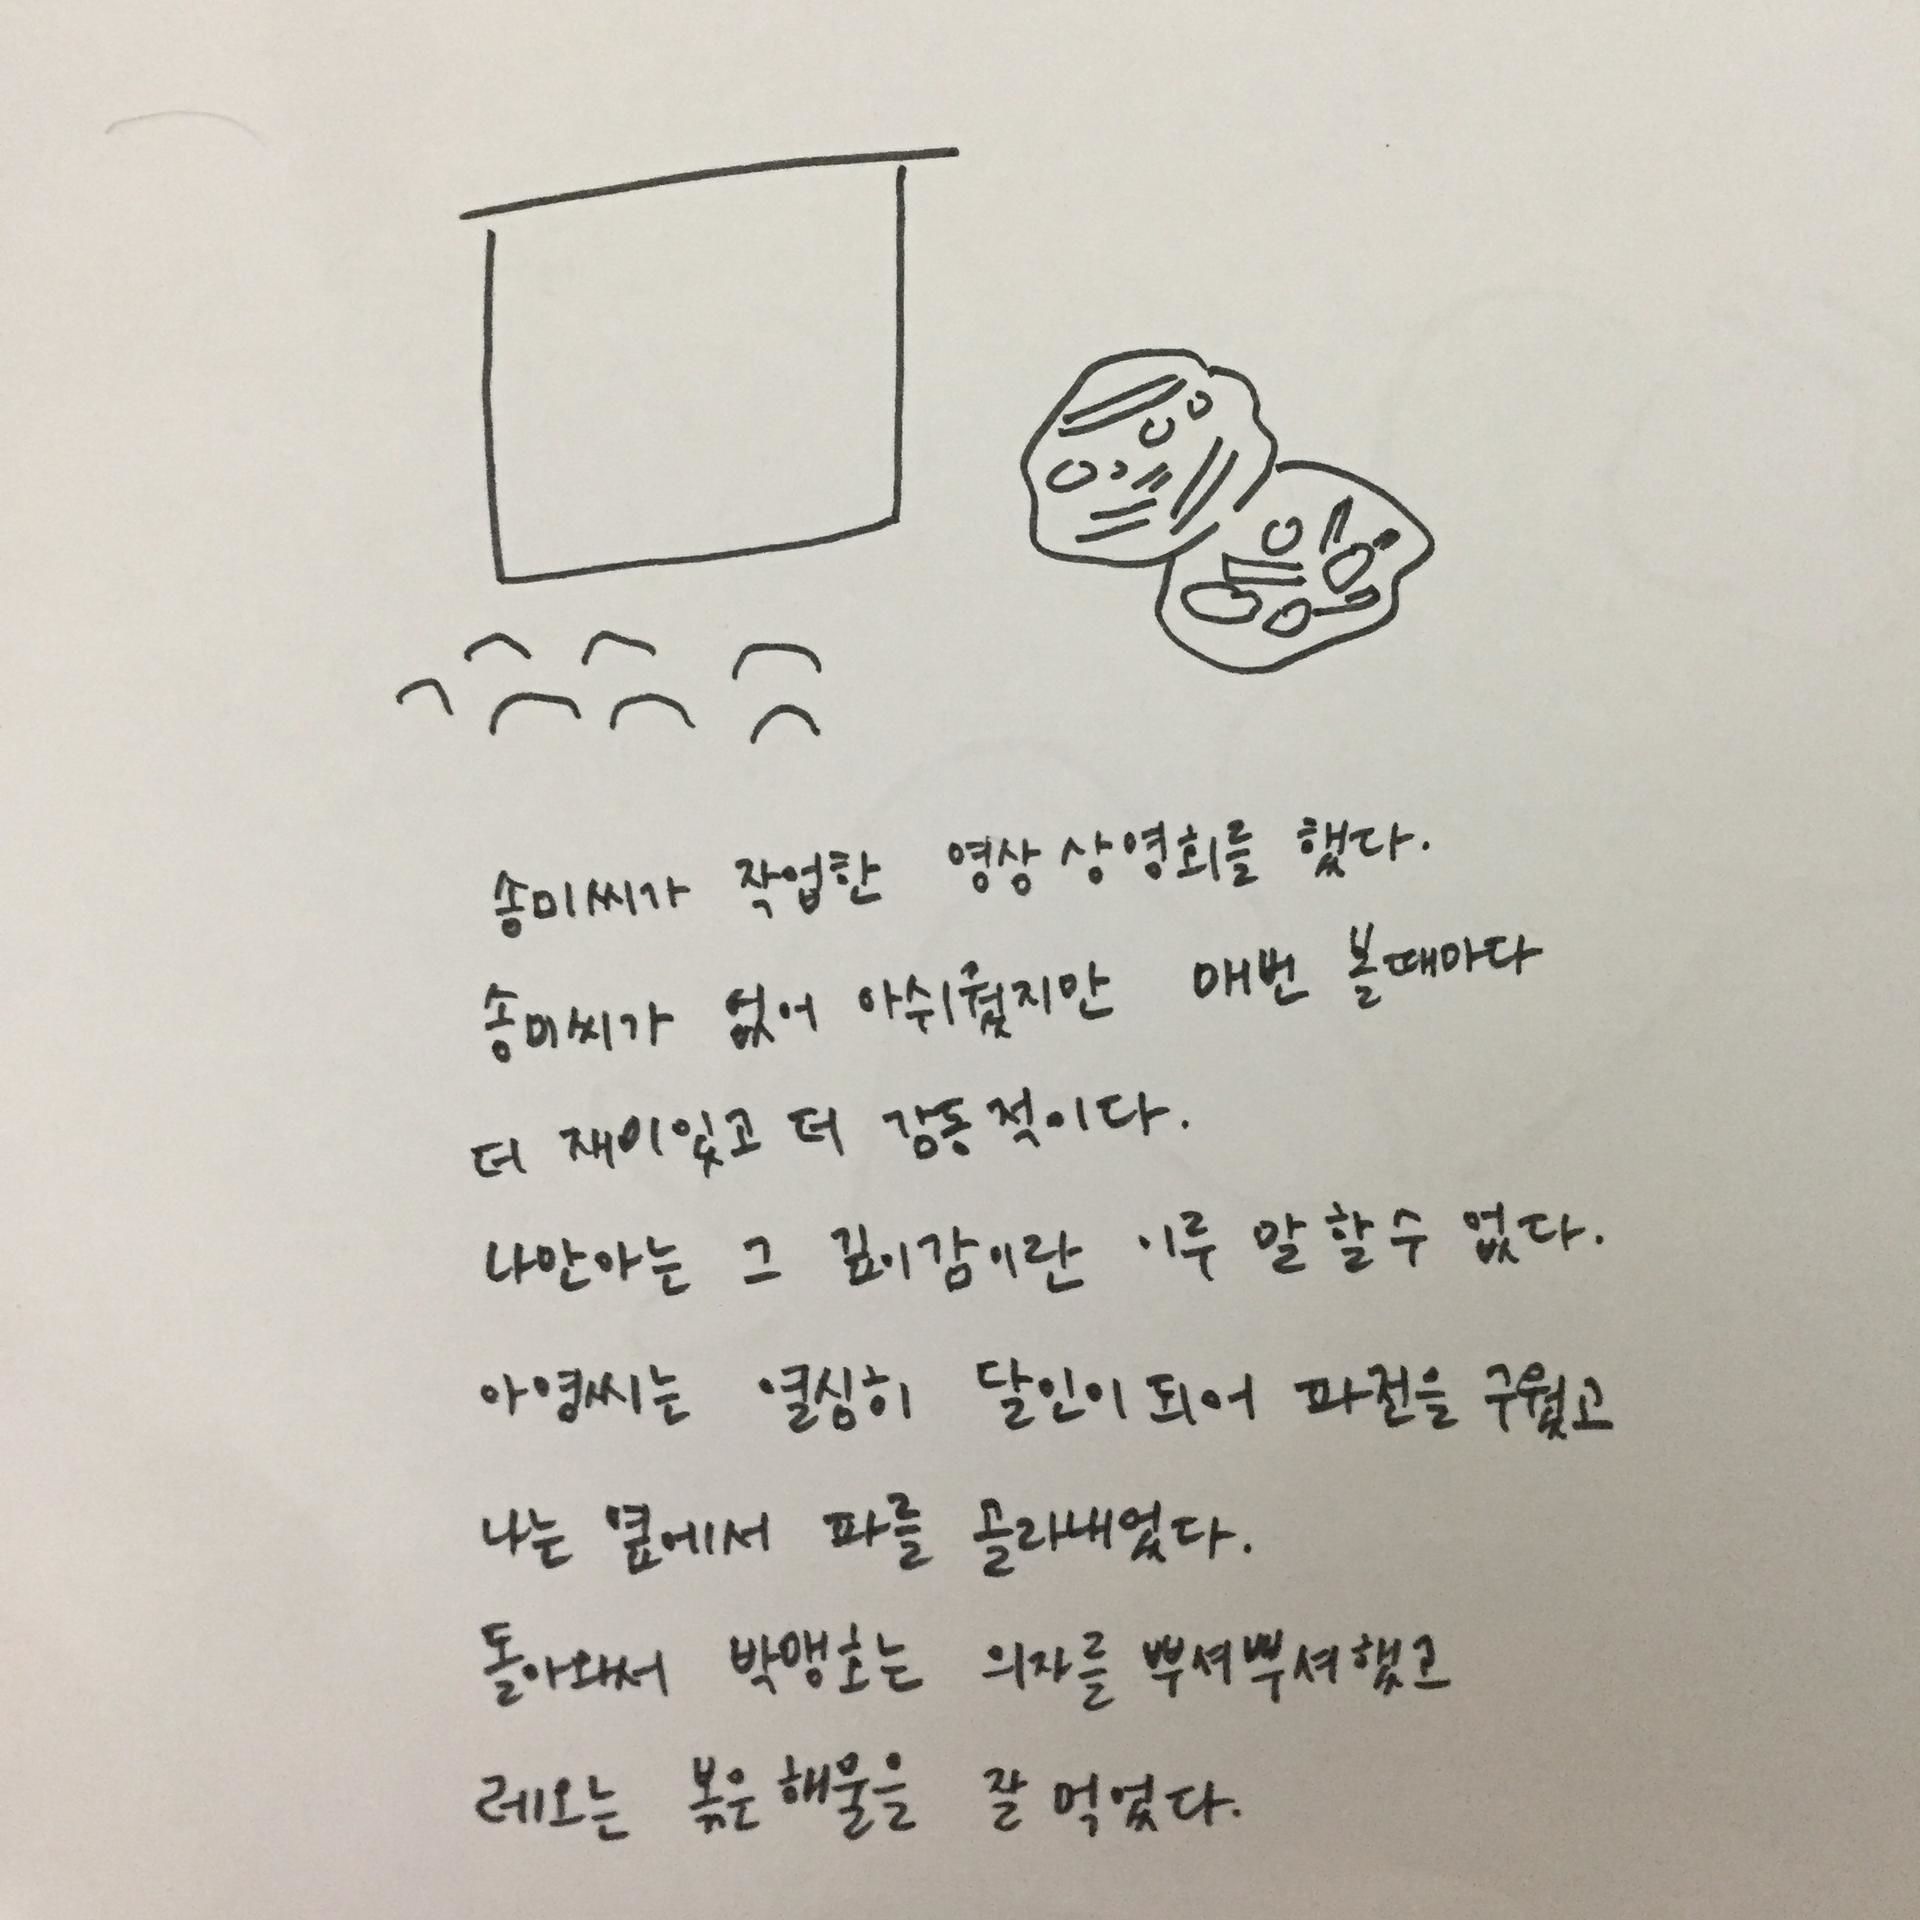 송미씨가 작업한 영상 상영회를 했다.
송미씨가 없어 아쉬웠지만 매번 볼때마다
더 재미있고 더 감동적이다.
나만아는 그 깊이감이란 이루 말할수 없다.
아영씨는 열심히 달인이 되어 파전을 구웠고
나는 옆에서 파를 골라내었다.
돌아와서 박맹호는 의자를 뿌셔뿌셔했고
레오는 볶은해물을 잘 먹었다.